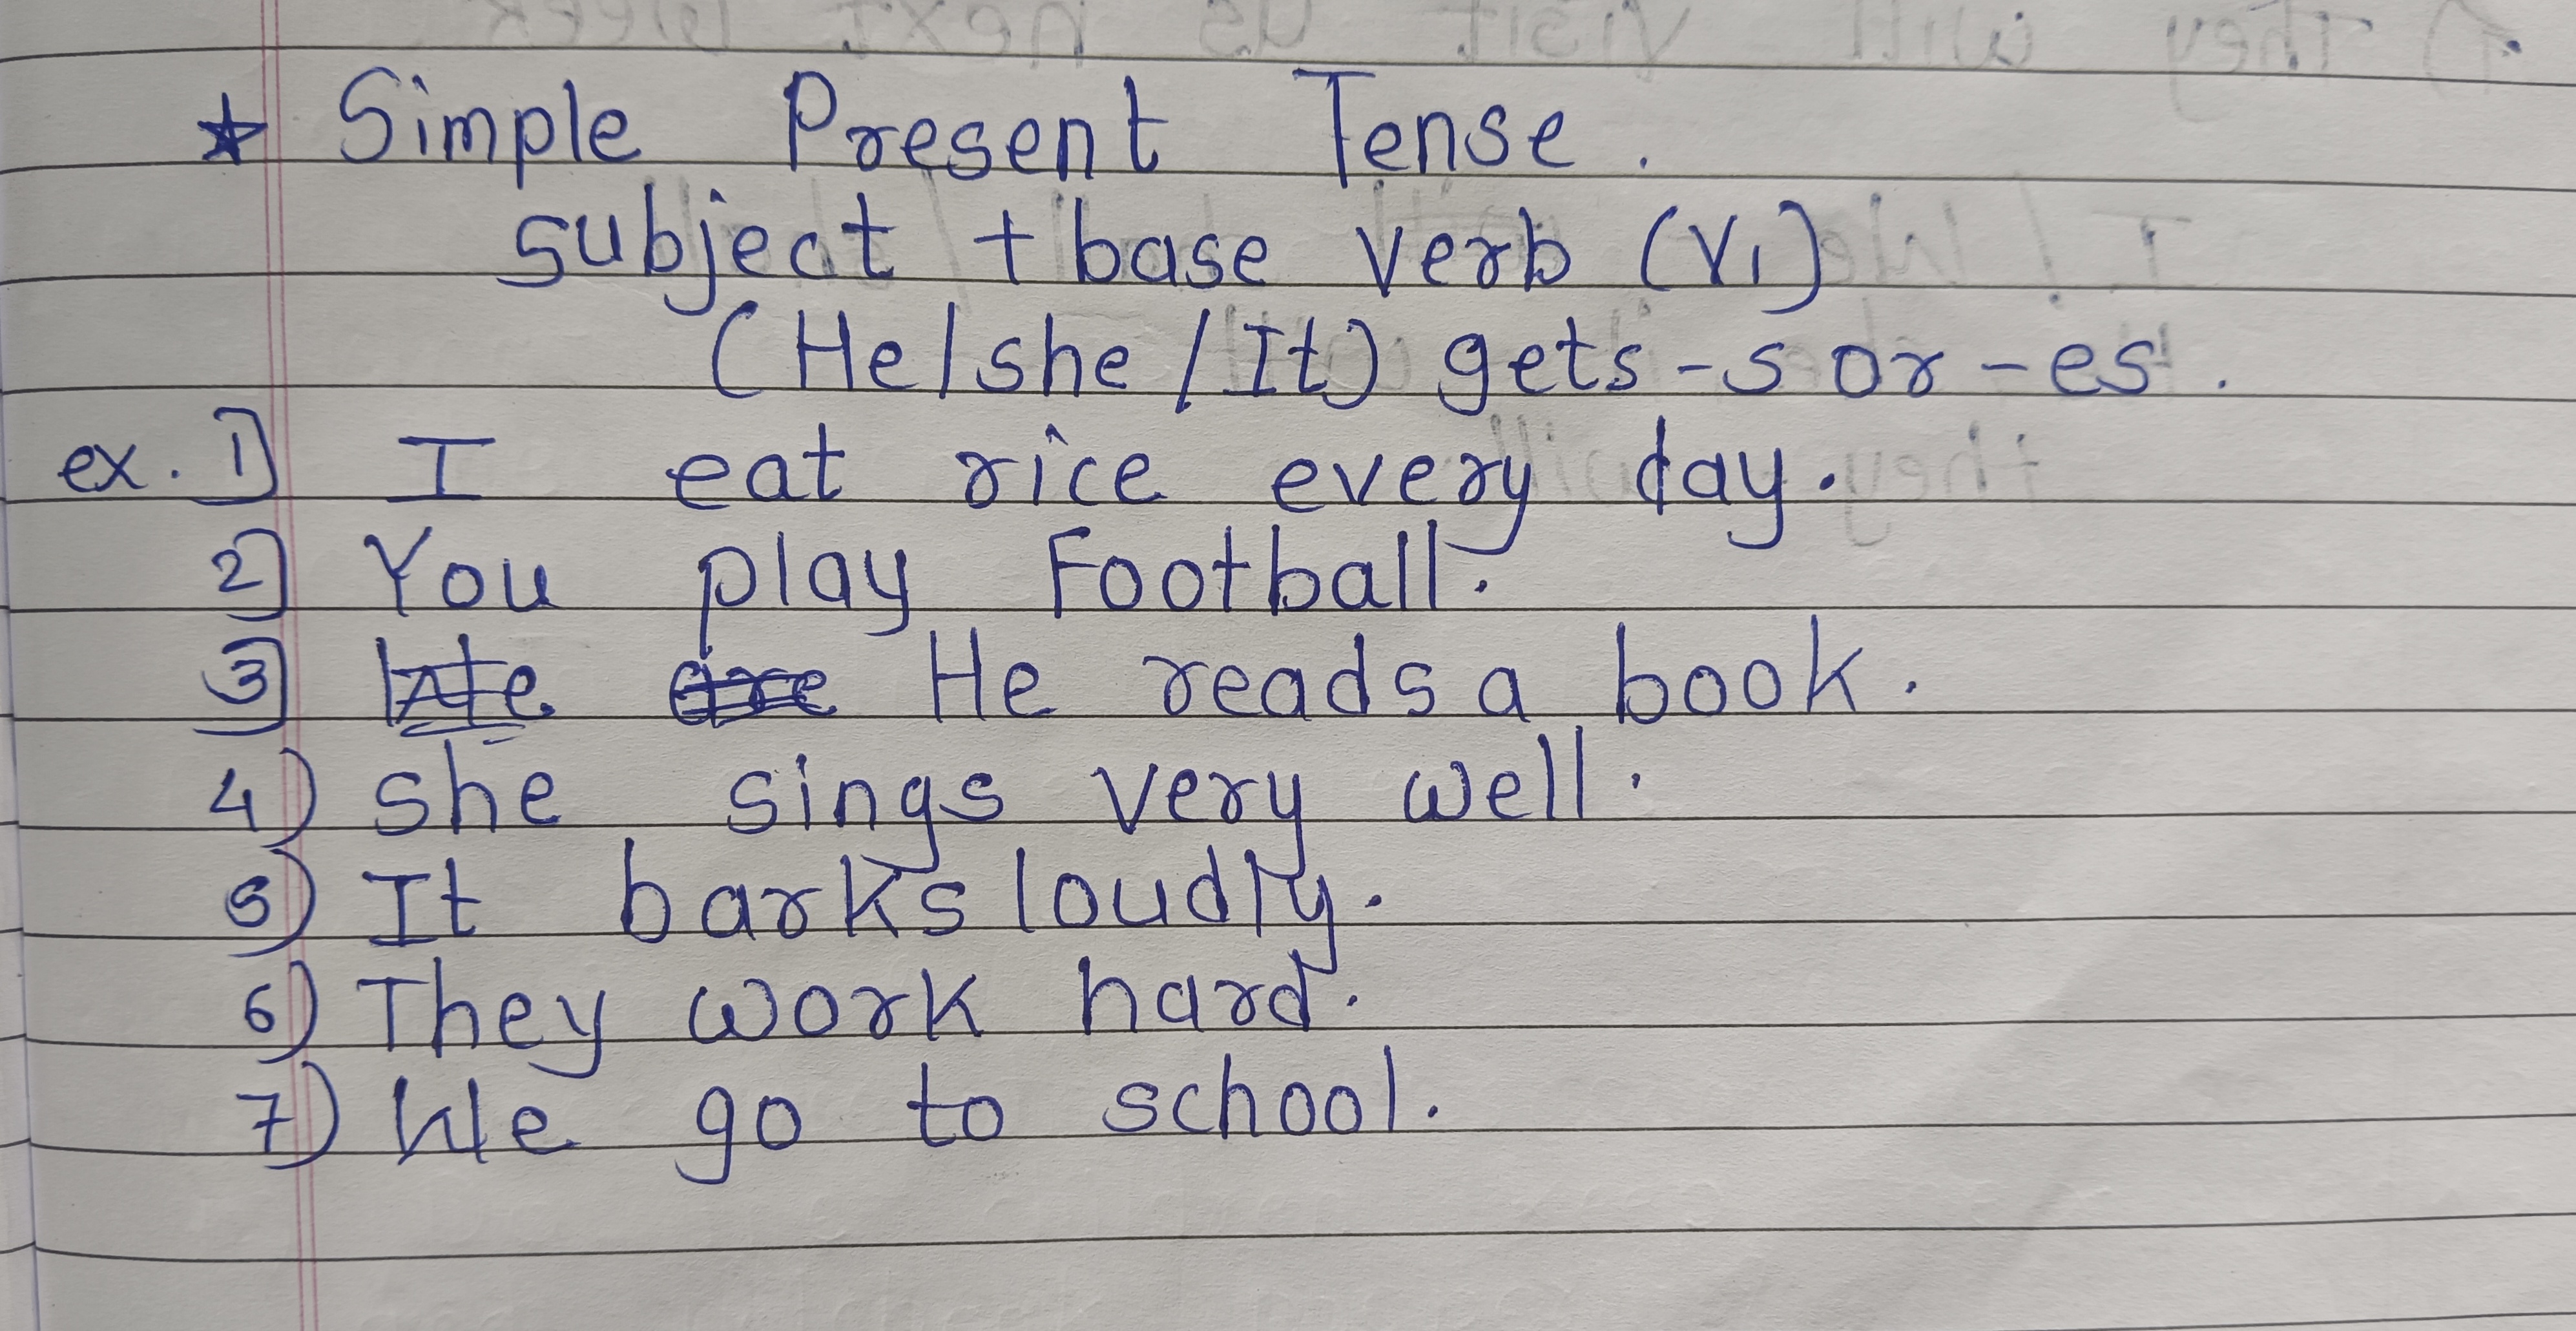 ★ Simple Present Tense.
subject + base verb (V1)
(He/she/It) gets -s or -es.
ex. 1) I eat rice every day.
2) You play Football.
3) He reads a book.
4) she sings very well.
5) It barks loudly.
6) They work hard.
7) We go to school.